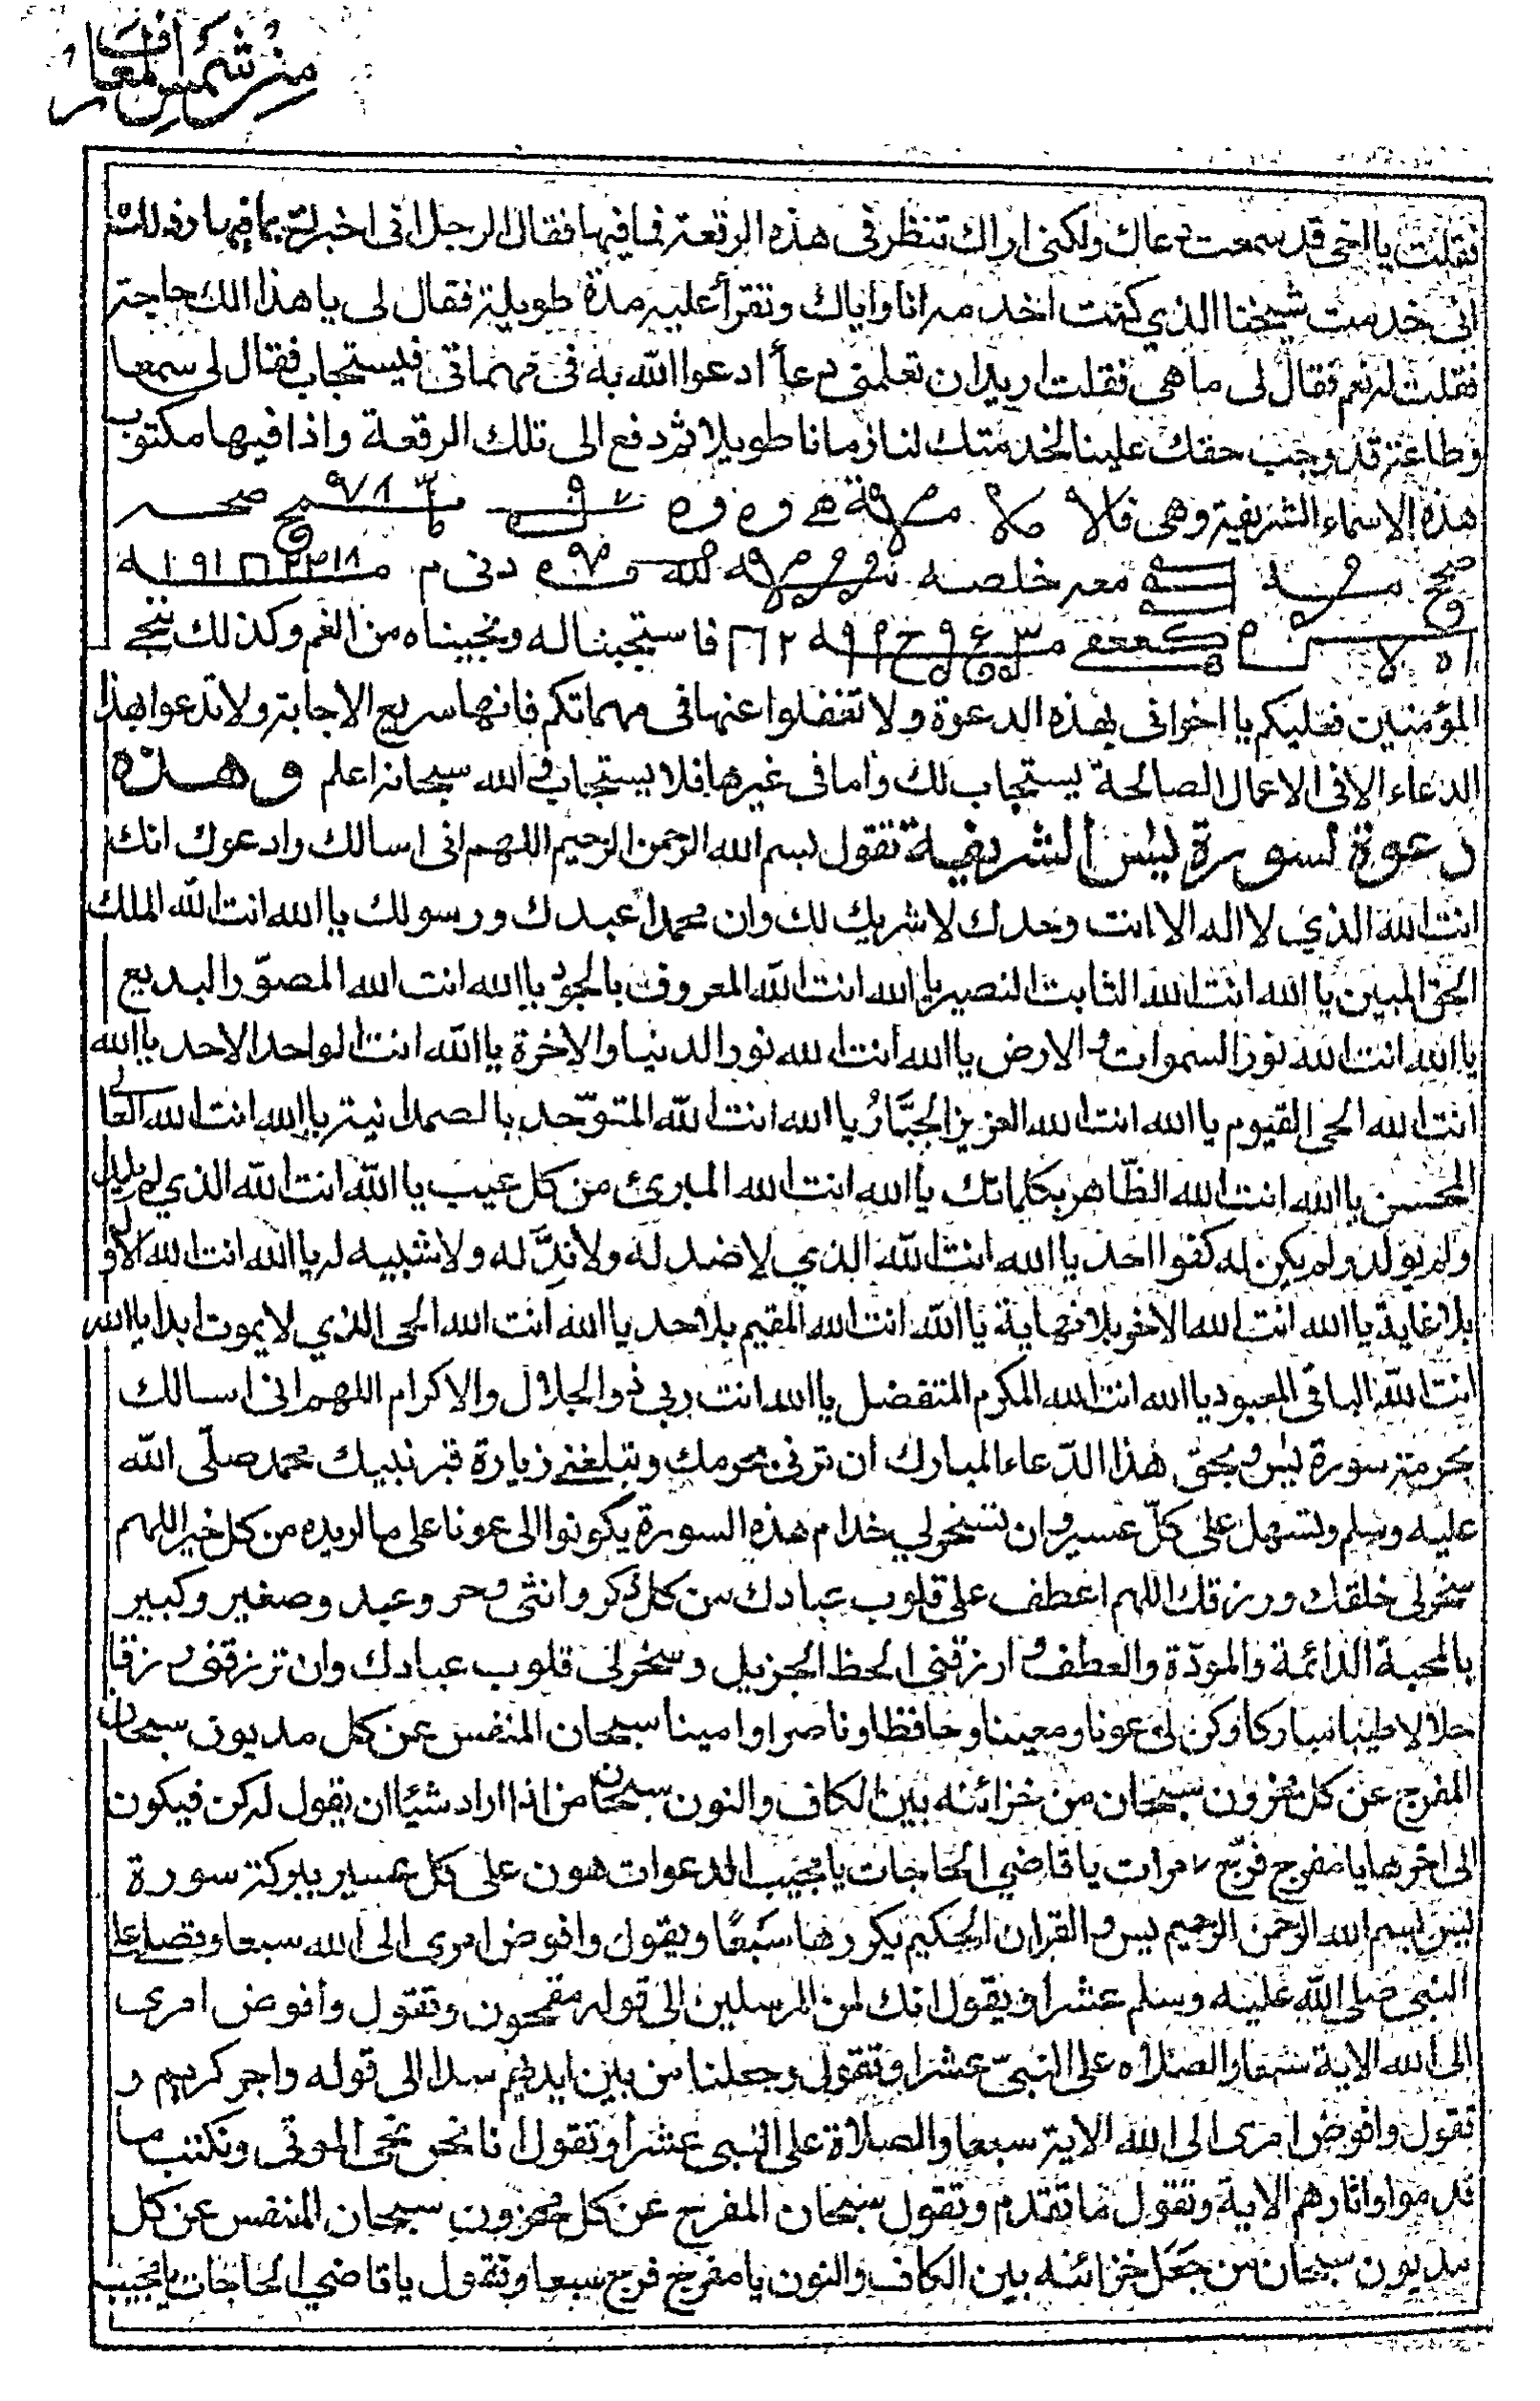 من شمس المعارف
فقلت يا اخى قد سمعت دعاك ولكنى اراك تنظر فى هذه الرقعة فما فيها فقال الرجل انى اخبرك بما فيها وذلك
انى خدمت شيخنا الذي كنت اخدمه انا واياك ونقرأ عليه مدة طويلة فقال لى يا هذا الك حاجة
فقلت له نعم فقال لى ما هى فقلت اريد ان تعلمنى دعأ ادعوا الله به فى مهماتى فيستجاب فقال لى سمعا
وطاعة قد وجب حقك علينا لخدمتك لنا زمانا طويلا ثم دفع الى تلك الرقعة واذا فيها مكتوب
هذه الاسماء الشريفة وهى
معه خلصه
فاستجبنا له ونجيناه من الغم وكذلك ننجى
المؤمنين فعليكم يا اخوانى بهذه الدعوة ولا تغفلوا عنها فى مهماتكم فانها سريع الاجابة ولا تدعوا هذا
الدعاء الا فى الاعمال الصالحة يستجاب لك واما فى غيرها فلا يستجاب والله سبحانه اعلم وهذه
دعوة لسورة يس الشريفة تقول بسم الله الرحمن الرحيم اللهم انى اسالك وادعوك انك
انت الله الذي لا اله الا انت وحدك لا شريك لك وان محمدا عبدك ورسولك يا الله انت الله الملك
الحق المبين يا الله انت الله الثابت النصير يا الله انت الله المعروف بالجود يا الله انت الله المصوّر البديع
يا الله انت الله نور السموات والارض يا الله انت الله نور الدنيا والاخرة يا الله انت الواحد الاحد يا الله
انت الله الحى القيوم يا الله انت الله العزيز الجبَّارُ يا الله انت الله المتوّحد بالصمدانية يا الله انت الله العالى
المحسن يا الله انت الله الظّاهر بكلماتك يا الله انت الله المبرئ من كل عيب يا الله انت الله الذي لم يلد
ولم يولد ولم يكن له كفوا احد يا الله انت الله الذي لا ضد له ولا ندَّ له ولا شبيه له يا الله انت الله الاول
بلا غاية يا الله انت الله الاخر بلا نهاية يا الله انت الله المقيم بلا حد يا الله انت الله الحى الذي لا يموت ابدا يا الله
انت الله الباقى المعبود يا الله انت الله المكرم المتفضل يا الله انت ربى ذو الجلال والاكرام اللهم انى اسالك
بحرمة سورة يس وبحق هذا الدّعاء المبارك ان ترنى حرمك وتبلغنى زيارة قبر نبيك محمد صلّى الله
عليه وسلم وتسهل علىّ كلّ عسير وان تسخر لي خدام هذه السورة يكونوا لى عونا على ما اريده من كل خير اللهم
سخر لى خلقك ورزقك اللهم اعطف على قلوب عبادك من كل ذكر وانثى وحر وعبد وصغير وكبير
بالمحبة الدائمة والمودّة والعطف وارزقنى الحظ الجزيل وسخر لى قلوب عبادك وان ترزقنى رزقا
حلالا طيبا مباركا وكن لى عونا ومعينا وحافظا وناصرا وامينا سبحان المنفس عن كل مديون سبحان
المفرج عن كل محزون سبحان من خزائنه بين الكاف والنون سبحان من اذا اراد شيئا ان يقول له كن فيكون
الى اخرها يا مفرج فرّج ٧ مرات يا قاضي الحاجات يا مجيب الدعوات هون على كل عسير ببركة سورة
يس بسم الله الرحمن الرحيم يس والقران الحكيم يكررها سَبْعًا ويقول وافوض امرى الى الله سبعا وتصلى على
النبى صلى الله عليه وسلم عشرا ويقول انك لمن المرسلين الى قوله مقمحون وتقول وافوض امرى
الى الله الاية سبعا والصلاة على النبىّ عشرا وتقول وجعلنا من بين ايديهم سدا الى قوله واجر كريم و
تقول وافوض امرى الى الله الاية سبعا والصلاة على النبى عشرا وتقول انا نحن نحى الموتى ونكتب ما
قدموا واثارهم الاية وتقول ما تقدم وتقول سبحان المفرج عن كل محزون سبحان المنفس عن كل
مديون سبحان من جَعَل خزائنه بين الكاف والنون يا مفرج فرج سبعا وتقول يا قاضى الحاجات يا مجيب